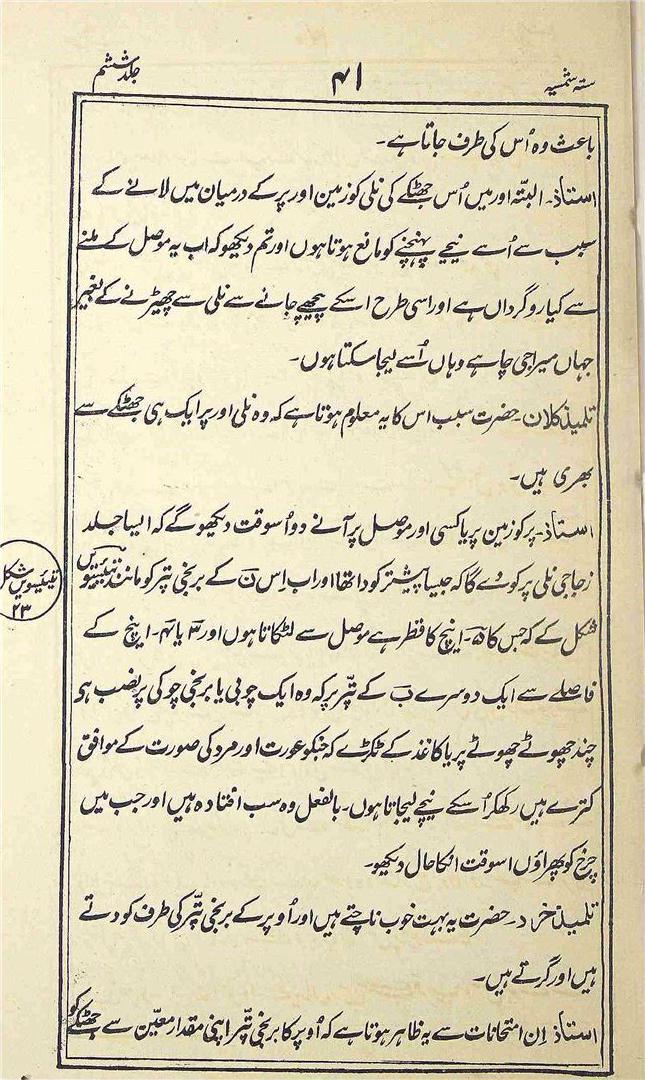 ستہ شمسیہ
۴۱
جلد ششم
باعث وہ اُس کی طرف جاتا ہے۔
استاذ۔ البتّہ اور میں اُس جھٹکے کی نلی کو زمین اور پر کے درمیان میں لانے کے
سبب سے اُسے نیچے پہنچنے کو مانع ہوتا ہوں اور تم دیکھو کہ اب یہ موصل کے ملنے
سے کیا روگرداں ہے اور اسی طرح اسکے پیچھے جانے سے نلی سے چھیڑنے کے بغیر
جہاں میرا جی چاہے وہاں اُسے لیجا سکتا ہوں۔
تلمیذ کلان۔ حضرت سبب اس کا یہ معلوم ہوتا ہے کہ وہ نلی اور پر ایک ہی جھٹکے سے
بھری ہیں۔
استاذ۔ پر کو زمین پر یا کسی اور موصل پر آنے دو اُسوقت دیکھو گے کہ ایسا جلد
زجاجی نلی پر کودے گا کہ جیسا پیشتر کودا تھا اور اب اِس ن کے برنجی پتر کو مانند تیئیسویں
شکل کے کہ جس کا ۵۔ اینچ کا قطر ہے موصل سے لٹکاتا ہوں اور ۳ یا ۴۔ اینچ کے
فاصلے سے ایک دوسرے ب کے پتّر پر کہ وہ ایک چوبی یا برنجی چوکی پر نصب ہو
چند چھوٹے چھوٹے پر یا کاغذ کے ٹکڑے کہ جنکو عورت اور مرد کی صورت کے موافق
کترے ہیں رکھکر اُسکے نیچے لیجاتا ہوں۔ بالفعل وہ سب افتادہ ہیں اور جب میں
چرخ کو پھراؤں اسوقت انکا حال دیکھو۔
تلمیذ خرد۔ حضرت یہ بہت خوب ناچتے ہیں اور اُوپر کے برنجی پتّر کی طرف کودتے
ہیں اور گرتے ہیں۔
استاذ اِن امتحانات سے یہ ظاہر ہوتا ہے کہ اُوپر کا برنجی پتّر اپنی مقدار معیّن سے جھٹکے کو
تیئیسویں شکل
۲۳